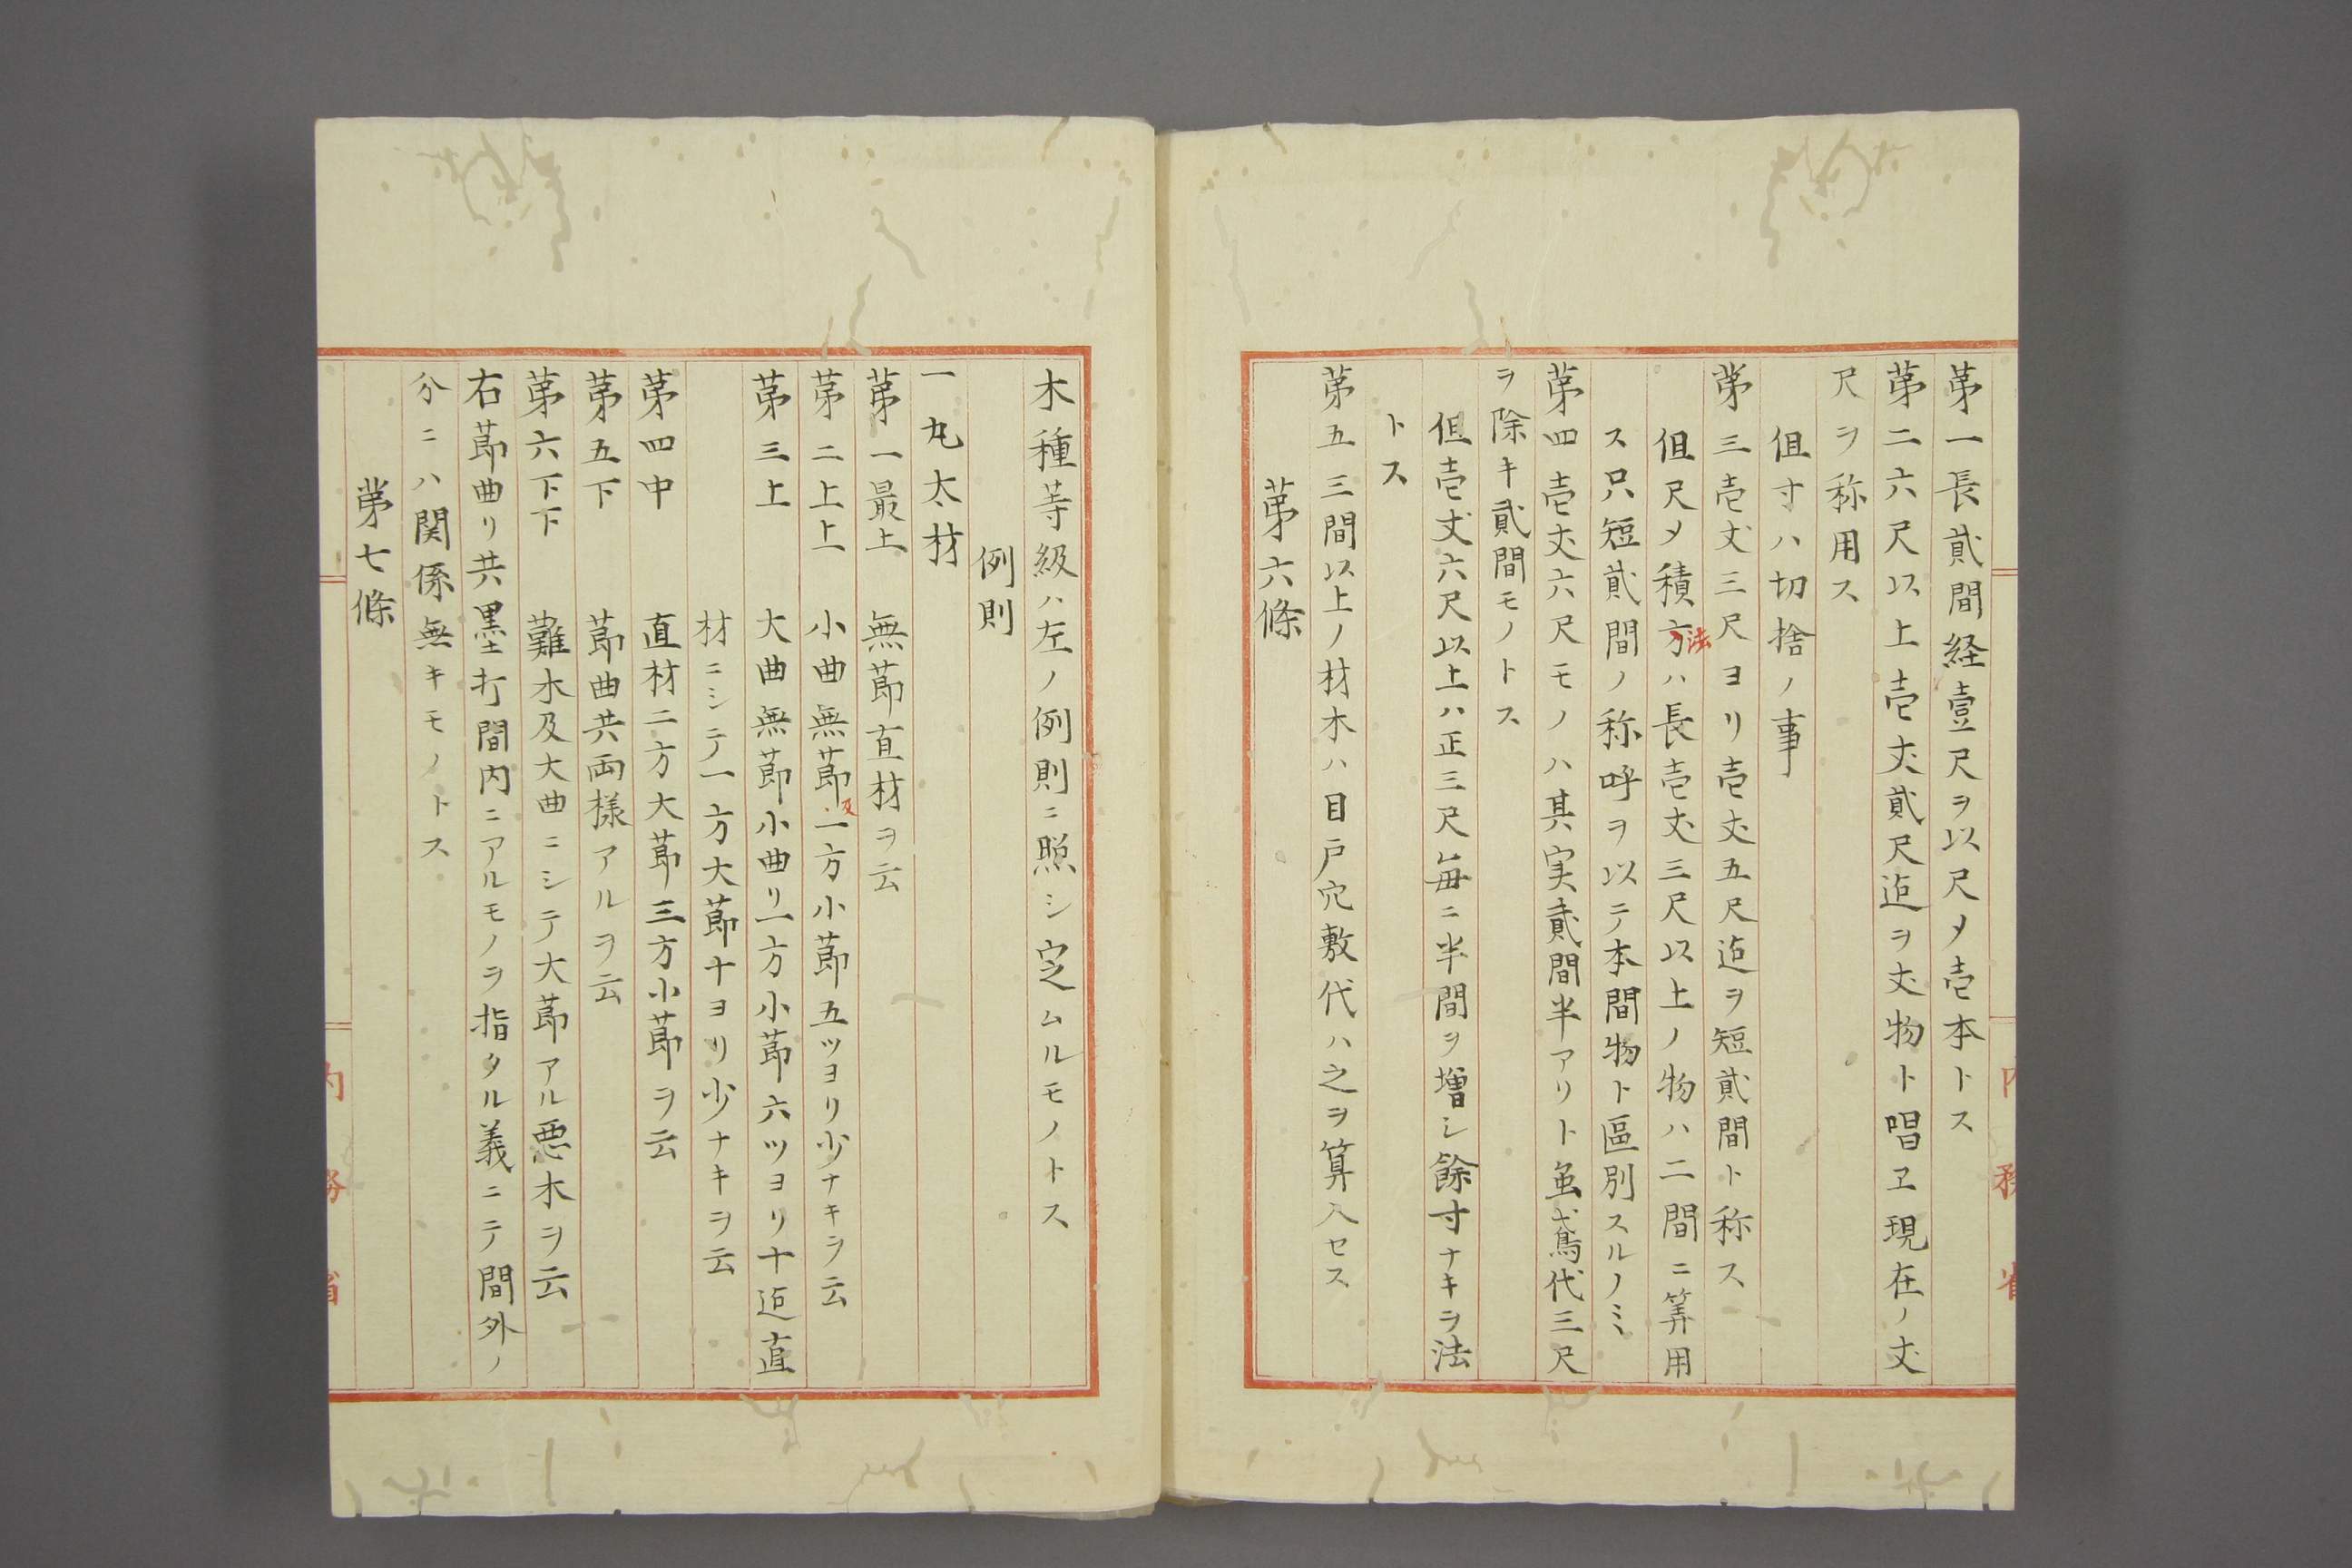 第一長貳間経壹尺ヲ以尺〆壱本トス
第二六尺以上壱丈貳尺迠ヲ丈物ト唱ヱ現在ノ丈
尺ヲ称用ス
但寸ハ切捨ノ事
第三壱丈三尺ヨリ壱丈五尺迠ヲ短貳間ト称ス
但尺〆積方法ハ長壱丈三尺以上ノ物ハ二間ニ筭用
ス只短貳間ノ称呼ヲ以テ本間物ト區別スルノミ
第四壱丈六尺モノハ其実貳間半アリト虽鳶代三尺
ヲ除キ貳間モノトス
但壱丈六尺以上ハ正三尺毎ニ半間ヲ増シ餘寸ナキヲ法
トス
第五三間以上ノ材木ハ目戸穴敷代ハ之ヲ算入セス
第六條
木種等級ハ左ノ例則ニ照シ定ムルモノトス
例則
一丸太材
第一最上 無莭直材ヲ云
第二上上 小曲無莭及一方小莭五ツヨリ少ナキヲ云
第三上 大曲無莭小曲リ一方小莭六ツヨリ十迠直
材ニシテ一方大莭十ヨリ少ナキヲ云
第四中 直材二方大莭三方小莭ヲ云
第五下 莭曲共両様アルヲ云
第六下下 難木及大曲ニシテ大莭アル悪木ヲ云
右莭曲リ共墨打間内ニアルモノヲ指タル義ニテ間外ノ
分ニハ関係無キモノトス
第七條
内務省
内務省